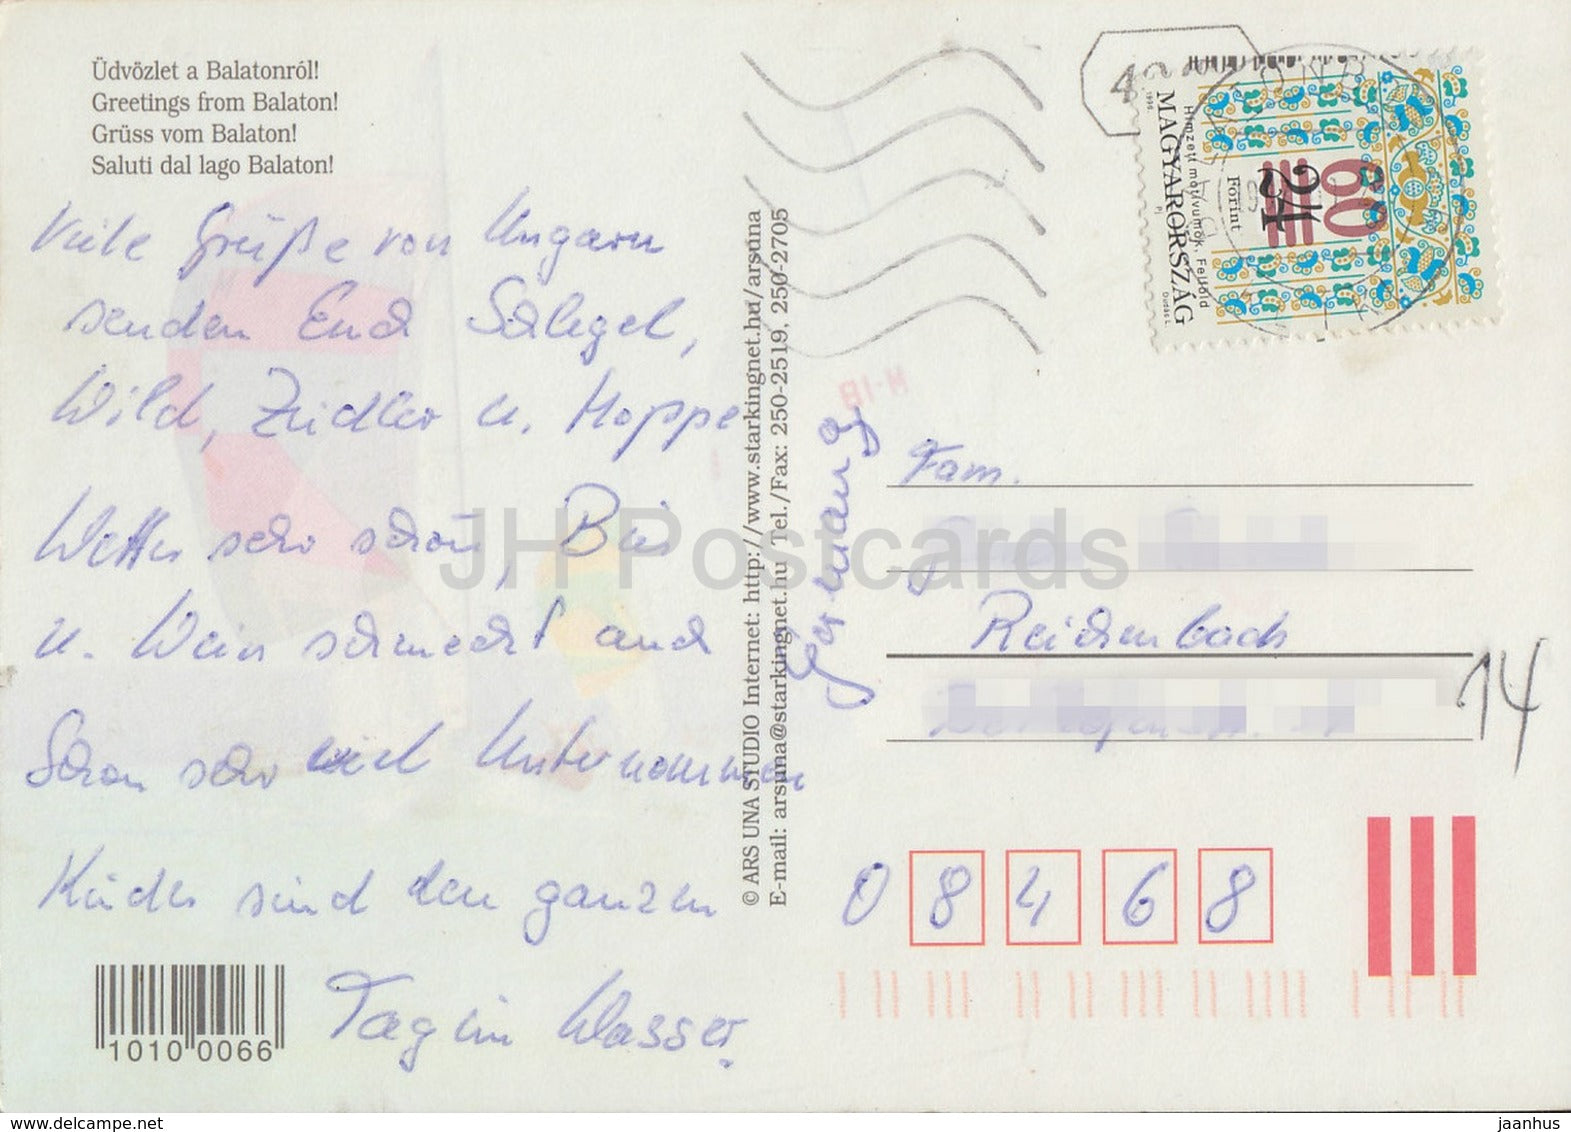 Üdvözlet a Balatonról!
Greetings from Balaton!
Grüss vom Balaton!
Saluti dal lago Balaton!
Viele Grüße von Ungarn
senden Euch Schlegel,
Wild, Zeidler u. Hoppe
Wetter sehr schön, Bier
u. Wein schmeckt auch
Schon sehr viel Unternommen
Kinder sind den ganzen
Tag im Wasser.
1010 0066
© ARS UNA STUDIO Internet: http://www.starkingnet.hu/arsuna
E-mail: arsuna@starkingnet.hu Tel./Fax: 250-2519, 250-2705
Germany
MAGYARORSZÁG
1996
Hímzett motívumok, Felföld
Forint
60
24
Dudás L.
Fam.
Reichenbach
14
0 8 4 6 8
JH Postcards
delcampe.net
jaanhus